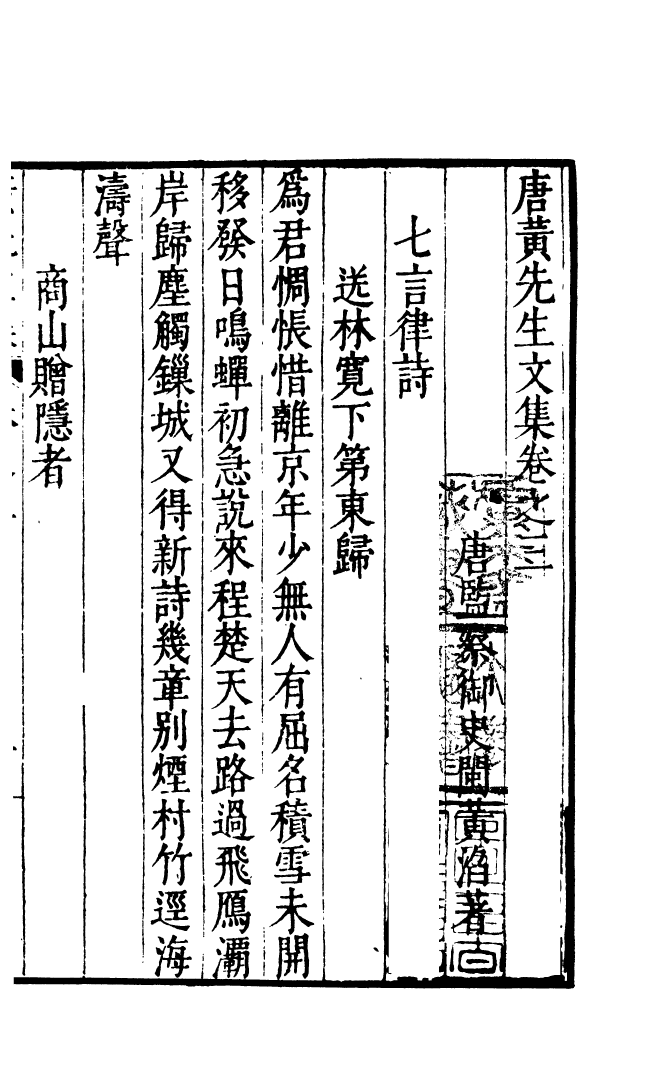 唐黃先生文集卷之三
唐監察御史閩黃滔著
七言律詩
送林寬下第東歸
爲君惆悵惜離京年少無人有屈名積雪未開
移發日鳴蟬初急說來程楚天去路過飛鴈灞
岸歸塵觸鏁城又得新詩幾章別煙村竹逕海
濤聲
商山贈隱者